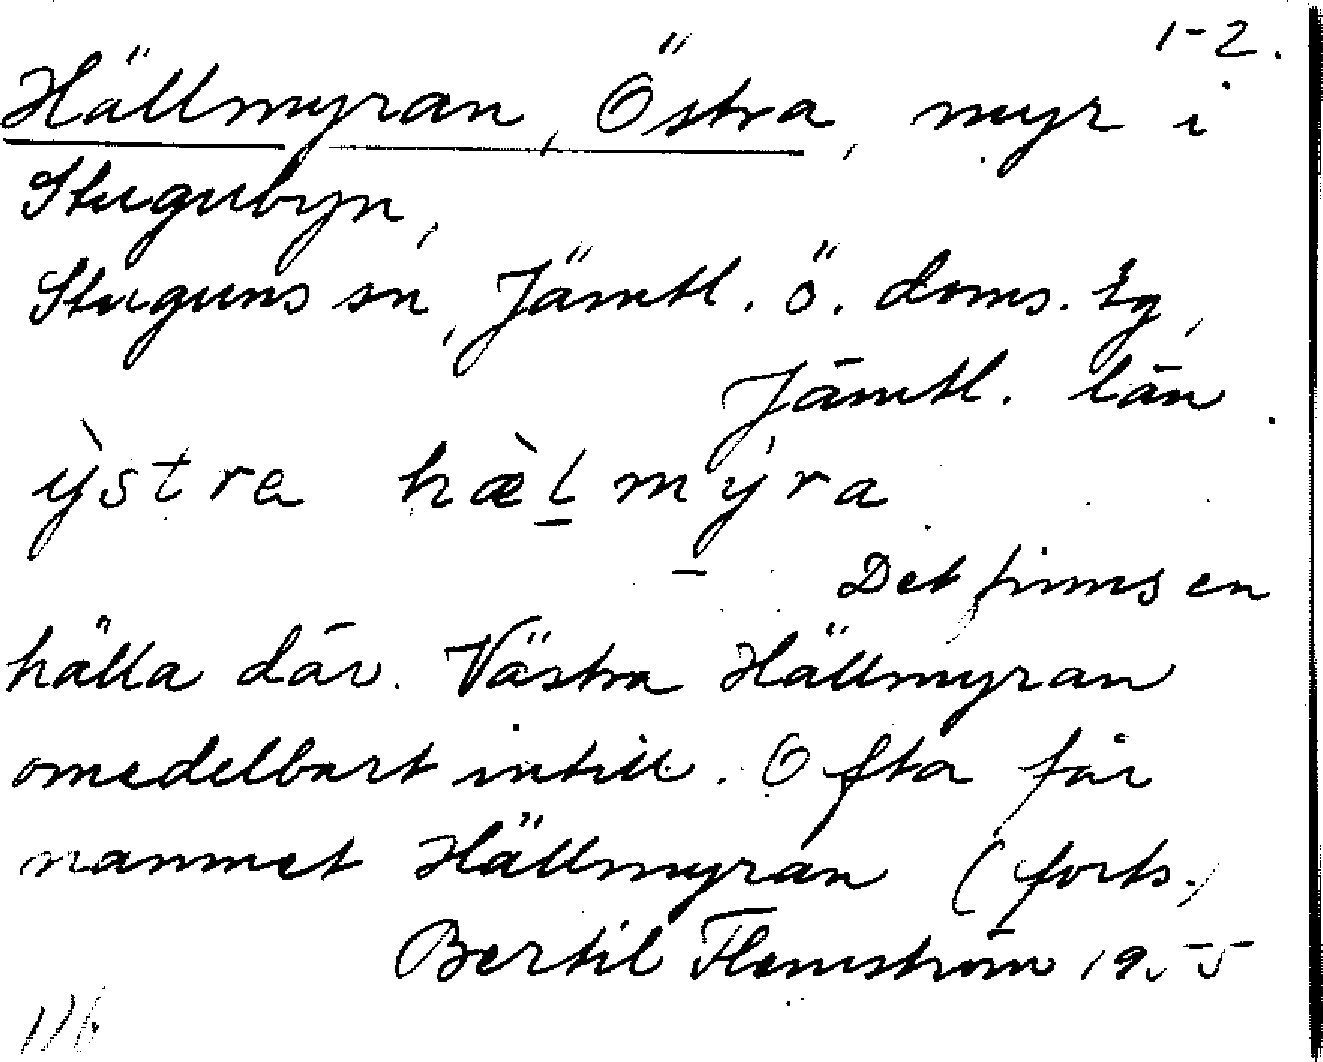 1-2.
Hällmyran, Östra, myr i
Stugubyn,
Stuguns sn, Jämtl. ö. doms. tg,
Jämtl. län.
ỳstra hæ̀l̠mýra
Det finns en
hälla där. Västra Hällmyran
omedelbart intill. Ofta får
namnet Hällmyran (forts.)
Bertil Flemström 1955